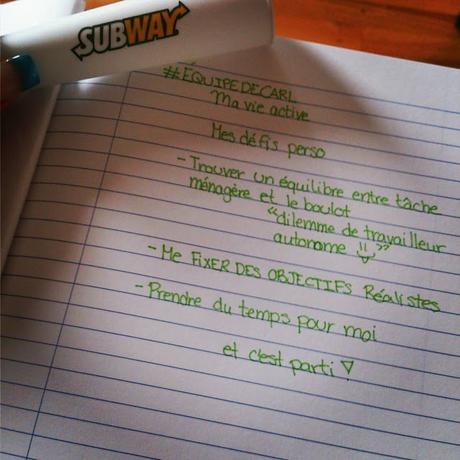 SUBWAY
#EQUIPEDECARL
Ma vie active
Mes défis perso
- Trouver un équilibre entre tâche
ménagère et le boulot
"dilemme de travailleur
autonome "
- Me FIXER DES OBJECTIFS Réalistes
- Prendre du temps pour moi
et c'est parti !